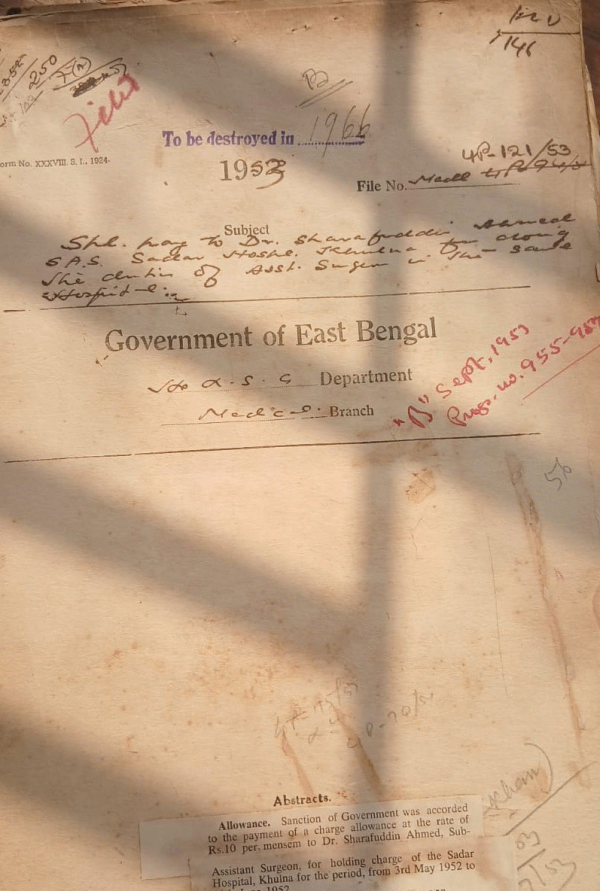 250
Filed
1966
To be destroyed in
Form No. XXXVIII. S. I., 1924.
1953
4P-121/53
File No.
Subject
Spl. pay to Dr. Sharafuddin Ahmed
S.A.S. Sadar Hospl. Khulna for doing
the duties of Asst. Surgeon in the same
Hospital.
Government of East Bengal
Department
Medical Branch
"B" Sept, 1953
Prog. no. 955-957
Abstracts.
Allowance. Sanction of Government was accorded
to the payment of a charge allowance at the rate of
Rs.10 per mensem to Dr. Sharafuddin Ahmed, Sub-
Assistant Surgeon, for holding charge of the Sadar
Hospital, Khulna for the period, from 3rd May 1952 to